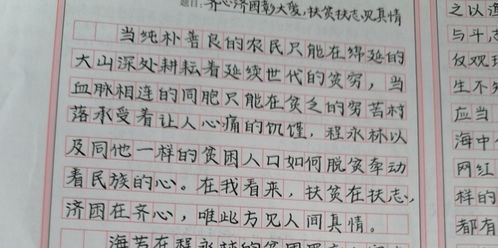 题目：齐心济困彰大爱，扶贫扶志见真情
当纯朴善良的农民只能在绵延的
大山深处耕耘着延续世代的贫穷，当
血脉相连的同胞只能在贫乏的穷苦村
落承受着让人心痛的饥馑，程永林以
及同他一样的贫困人口如何脱贫牵动
着民族的心。在我看来，扶贫在扶志，
济困在齐心，唯此方见人间真情。
海芳在程永林的贫困
之以道
与斗，志
反观
生不
应当
海中
网红
样的
都有